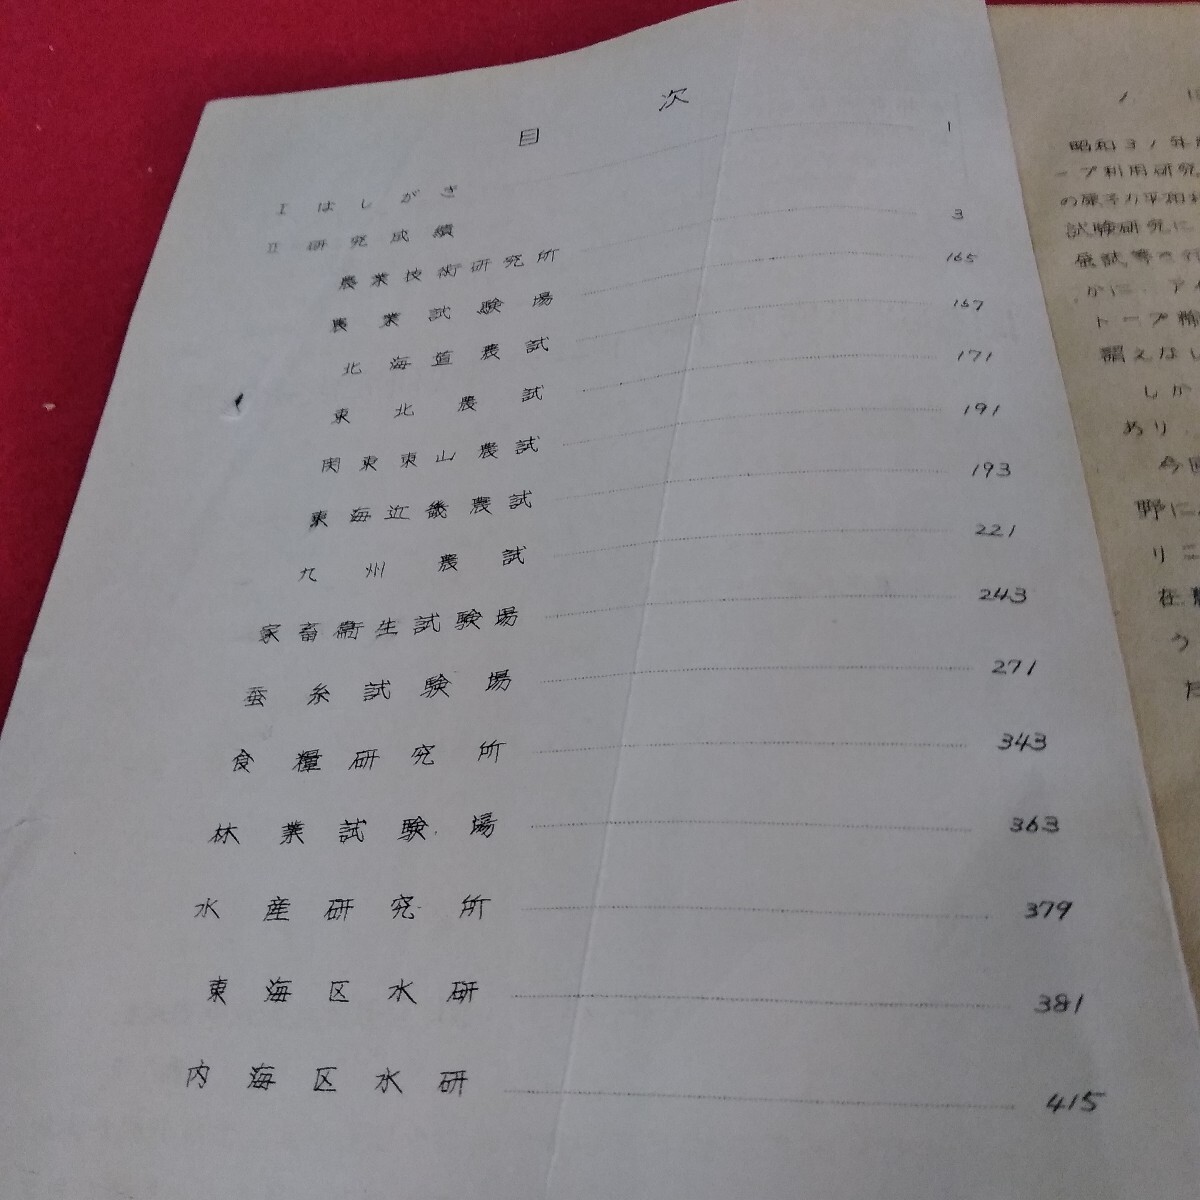 目次
I はしがき 1
II 研究成績
農業技術研究所 3
農業試験場 165
北海道農試 167
東北農試 171
関東東山農試 191
東海近畿農試 193
九州農試 221
家畜衛生試験場 243
蚕糸試験場 271
食糧研究所 343
林業試験場 363
水産研究所 379
東海区水研 381
内海区水研 415
昭和31年
ープ利用研究
の原子力平和
試験研究に
かに、ア
トープ
しか
あり、
今回
野に
リ
在
う